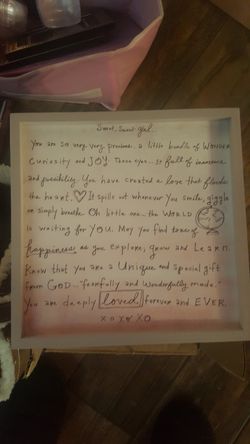 Sweet, Sweet girl...
You are so very, very precious. a little bundle of WONDER
Curiosity and JOY. Those eyes...so full of innocence
and possibility. You have created a love that floods
the heart. ♡ It spills out whenever You smile, giggle
or simply breathe. Oh little one... the WORLD
is waiting for YOU. May you find tons of
happiness as you explore, grow and Learn.
Know that you are a Unique and special gift
from GOD..."fearfully and wonderfully made."
You are deeply loved, forever and EVER.
XOXOXO